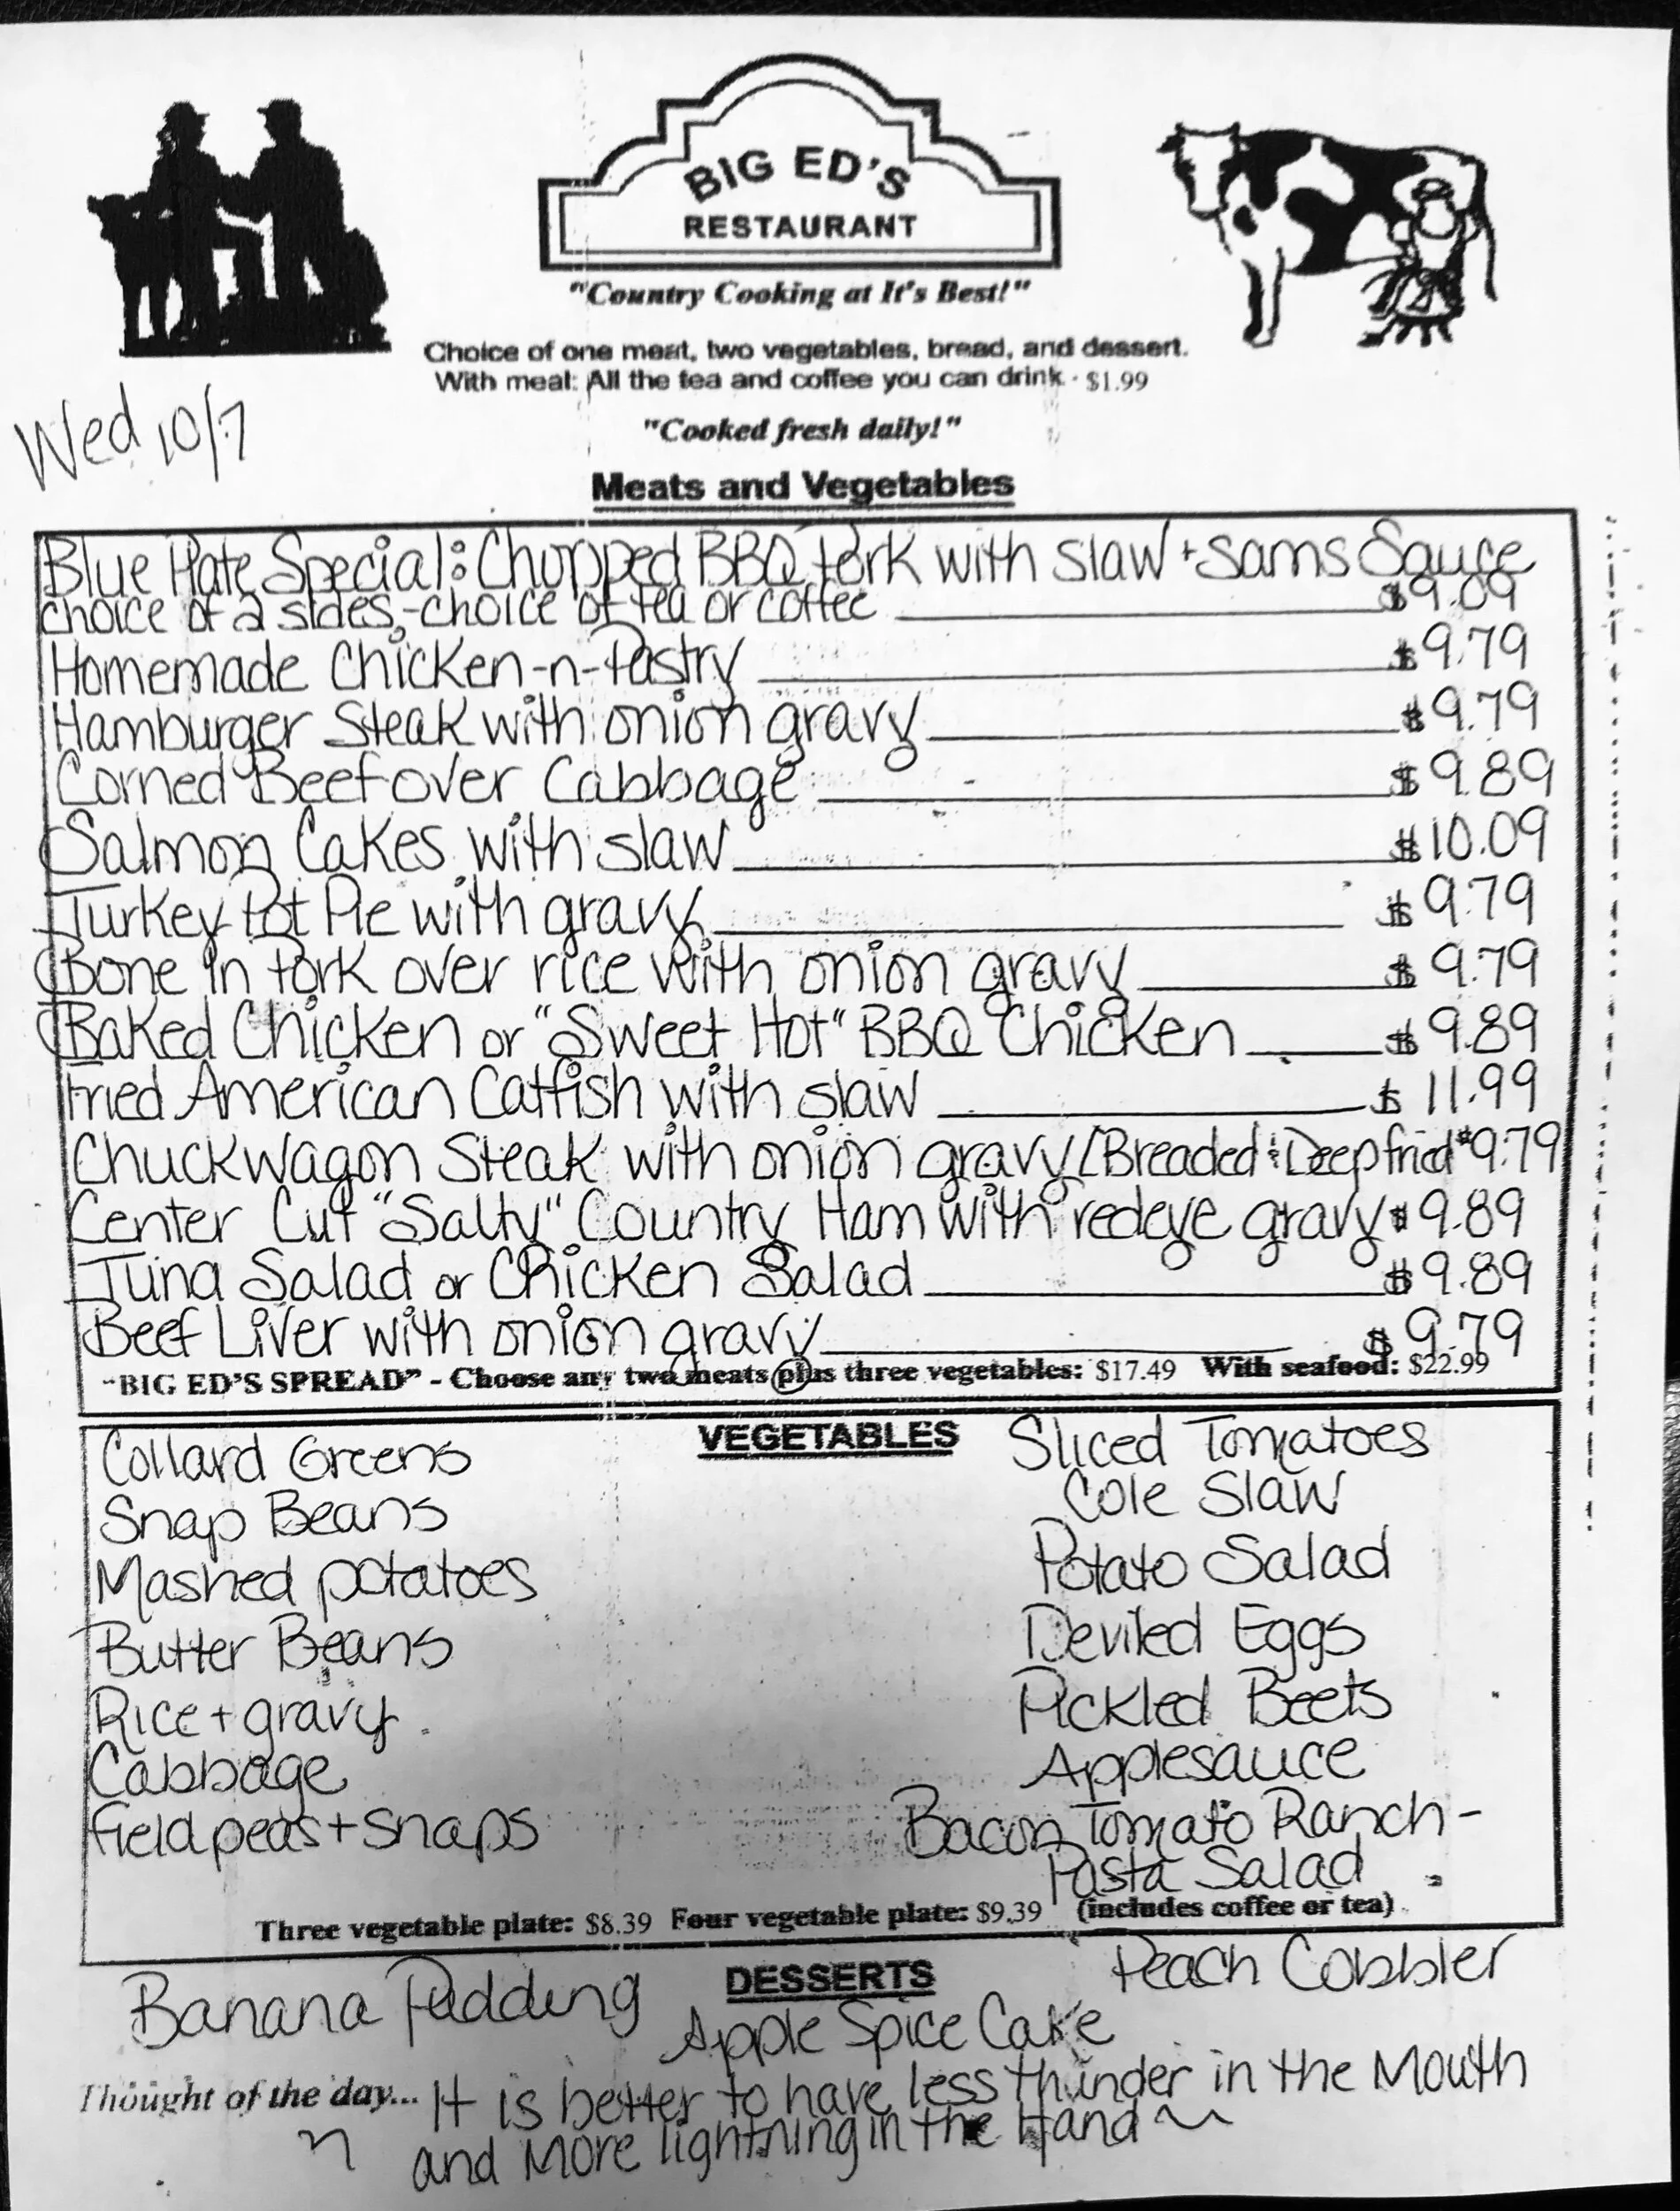 BIG ED'S
RESTAURANT
"Country Cooking at It's Best!"
Choice of one meat, two vegetables, bread, and dessert.
With meal: All the tea and coffee you can drink - $1.99
Wed 10/7
"Cooked fresh daily!"
Meats and Vegetables
Blue Plate Special: Chopped BBQ Pork with slaw + Sams Sauce
choice of 2 sides, -choice of tea or coffee $9.09
Homemade Chicken-n-Pastry $9.79
Hamburger Steak with onion gravy $9.79
Corned Beef over Cabbage $9.89
Salmon Cakes with slaw $10.09
Turkey Pot Pie with gravy $9.79
Bone in Pork over rice with onion gravy $9.79
Baked Chicken or "Sweet Hot" BBQ Chicken $9.89
Fried American Catfish with slaw $11.99
Chuckwagon Steak with onion gravy [Breaded & Deep fried $9.79
Center Cut "Salty" Country Ham with redeye gravy $9.89
Tuna Salad or Chicken Salad $9.89
Beef Liver with onion gravy $9.79
"BIG ED'S SPREAD" - Choose any two meats plus three vegetables: $17.49 With seafood: $22.99
VEGETABLES
Collard Greens
Snap Beans
Mashed potatoes
Butter Beans
Rice + gravy
Cabbage
Field peas + snaps
Sliced Tomatoes
Cole Slaw
Potato Salad
Deviled Eggs
Pickled Beets
Applesauce
Bacon Tomato Ranch -
Pasta Salad
Three vegetable plate: $8.39 Four vegetable plate: $9.39 (includes coffee or tea)
DESSERTS
Banana Pudding
Apple Spice Cake
Peach Cobbler
Thought of the day... It is better to have less thunder in the Mouth
and More lightning in the Hand ~